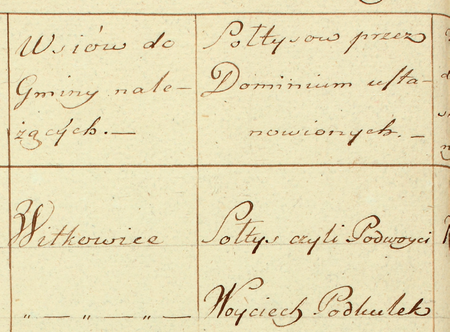 Wsiów do
Gminy nale-
żących. —
Sołtysow przez
Dominium usta-
nowionych. —
Witkowice
Sołtys czyli Podwoyci
„ — „ — „ — „
Woyciech Podkulek